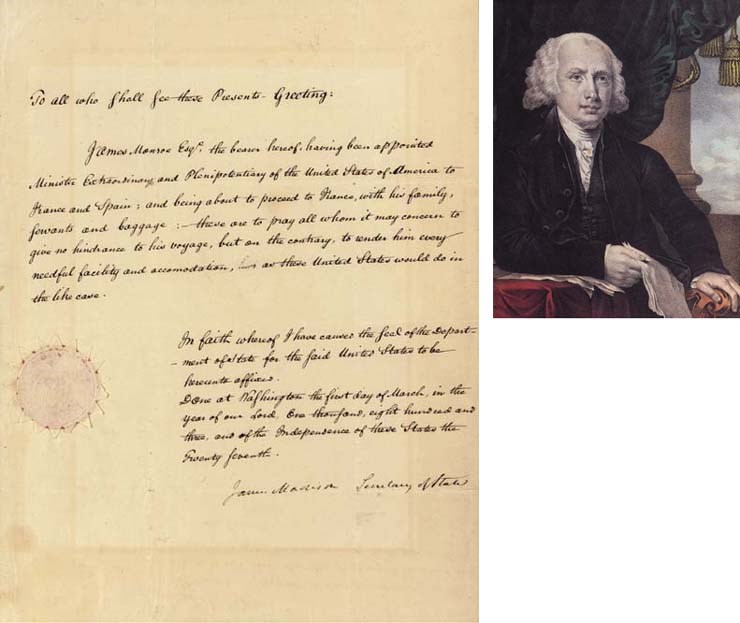 To all who Shall See these Presents - Greeting:
James Monroe Esqr. the bearer hereof, having been appointed
Minister Extraordinary and Plenipotentiary of the United States of America to
France and Spain; and being about to proceed to France, with his family,
Servants and baggage :- these are to pray all whom it may concern to
give no hindrance to his voyage, but on the contrary, to render him every
needful facility and accomodation, as these United States would do in
the like case.
In faith whereof I have caused the Seal of the Depart-
-ment of State for the Said United States to be
hereunto affixed.
Done at Washington the first day of March, in the
year of our Lord, One thousand, eight hundred and
three, and of the Independence of these States the
Twenty Seventh.
James Madison Secretary of State